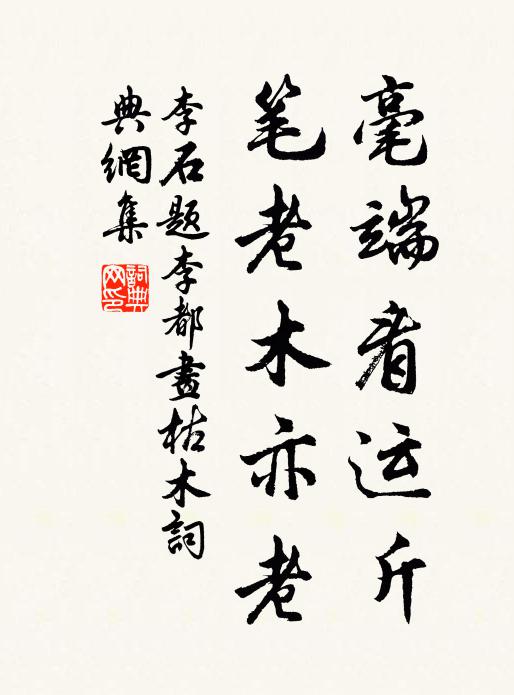 毫端看运斤
笔老木亦老
李石题李都畫枯木詞
典網集
詞典网印